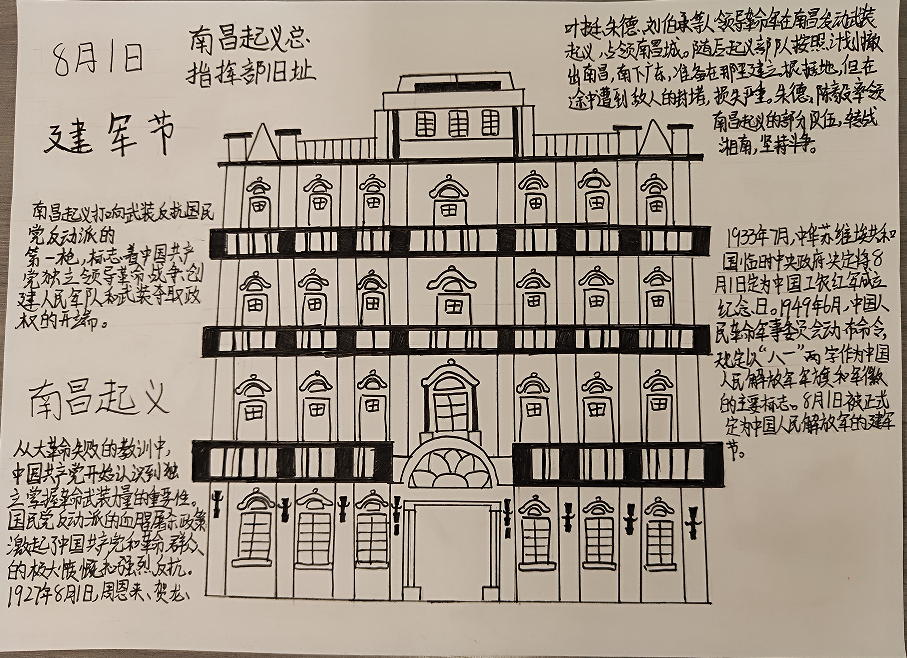 8月1日
建军节
南昌起义总
指挥部旧址
南昌起义打响武装反抗国民
党反动派的
第一枪,标志着中国共产
党独立领导革命战争、创
建人民军队和武装夺取政
权的开端。
南昌起义
从大革命失败的教训中,
中国共产党开始认识到独
立掌握革命武装力量的重要性。
国民党反动派的血腥屠杀政策
激起了中国共产党和革命群众
的极大愤慨和强烈反抗。
1927年8月1日,周恩来、贺龙、
叶挺、朱德、刘伯承等人领导革命军在南昌发动武装
起义,占领南昌城。随后起义部队按照计划撤
出南昌,南下广东,准备在那里建立根据地,但在
途中遭到敌人的封堵,损失严重。朱德、陈毅率领
南昌起义的部分队伍,转战
湘南,坚持斗争。
1933年7月,中华苏维埃共和
国临时中央政府决定将8
月1日定为中国工农红军成立
纪念日。1949年6月,中国人
民革命军事委员会动布命令,
规定以“八一”两字作为中国
人民解放军军旗和军徽
的主要标志。8月1日被正式
定为中国人民解放军的建军
节。